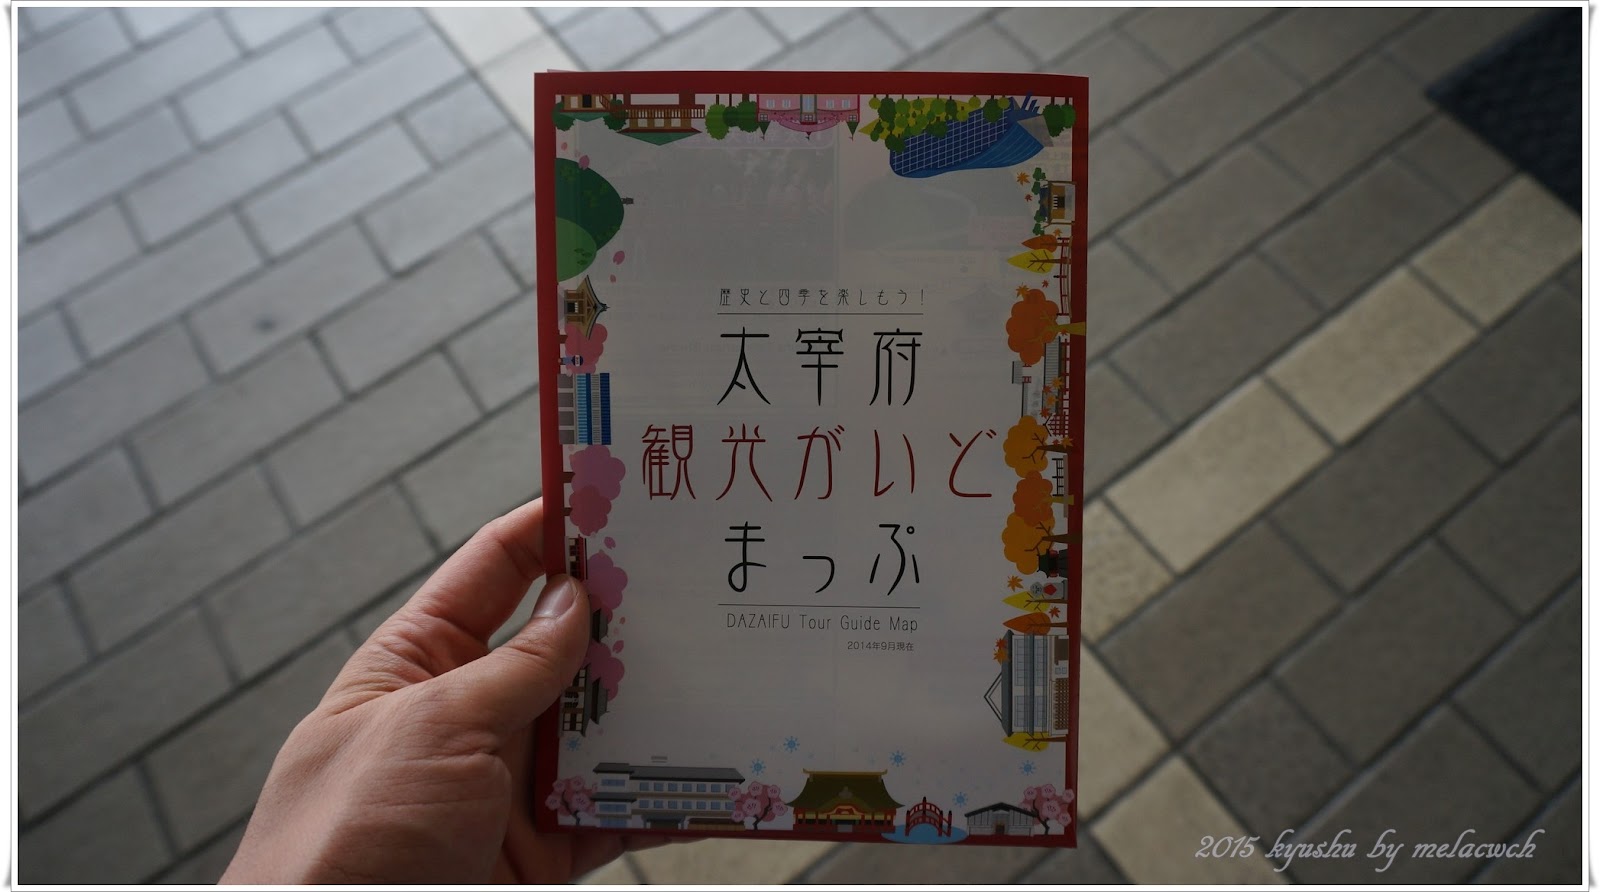 歴史と四季を楽しもう！
太宰府
観光がいど
まっぷ
DAZAIFU Tour Guide Map
2014年9月現在
2015 kyushu by melacwch